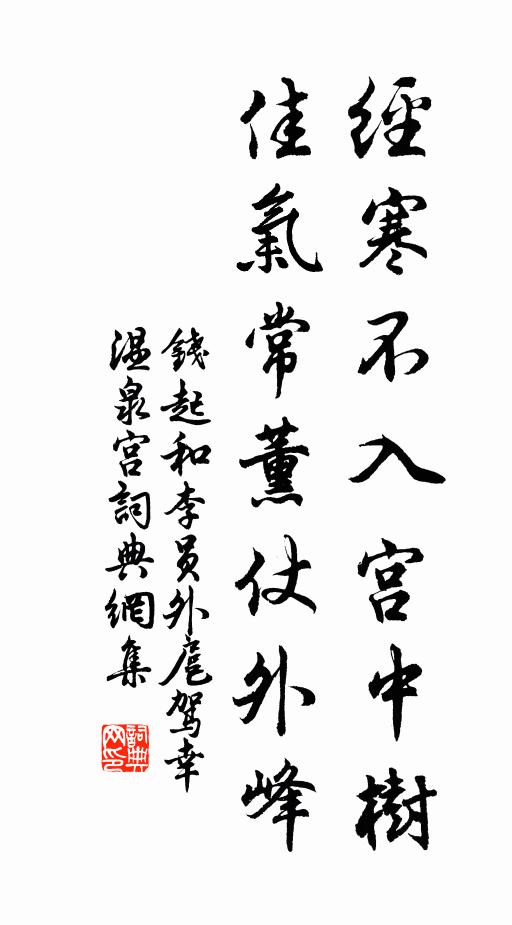 經寒不入宮中樹
佳氣常薰仗外峰
錢起和李員外扈駕幸
溫泉宮詞典網集
詞典
网印